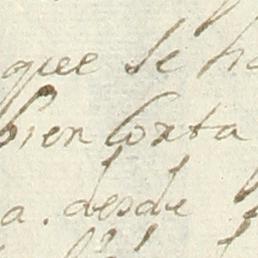 que se ha
bien Corta
a. desde